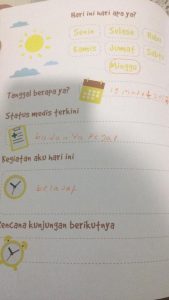 Hari ini hari apa ya?
Senin Selasa Rabu
Kamis Jumat Sabtu
Minggu
Tanggal berapa ya?
Status medis terkini
Kegiatan aku hari ini
belajar
Rencana kunjungan berikutnya